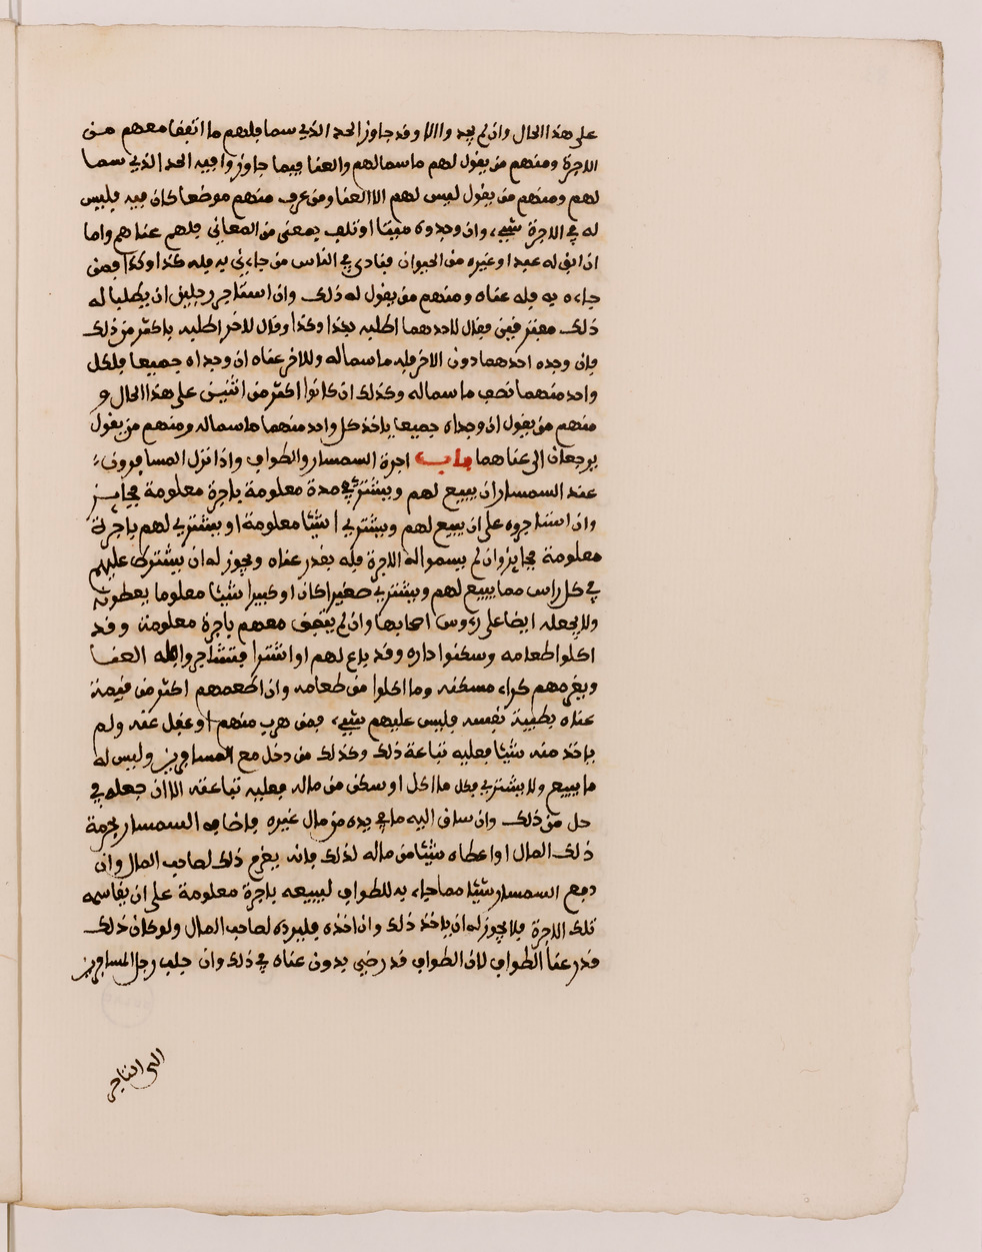 على هذا الحال وان لم يجدوا الا وقد جاوز الحد الذي سما فلهم ما اتفقا معهم من
الاجرة ومنهم من يقول لهم ما سما لهم والعنا فيما جاوزوا فيه الحد الذي سما
لهم ومنهم من يقول ليس لهم الا العنا ومن عرف منهم موضعا كان فيه فليس
له في الاجرة شيء، وان وجدوه ميتا او تلف بمعنى من المعاني فلهم عناهم واما
ان ابق له عبد او غيره من الحيوان فنادى في الناس من جاءني به فله كذا وكذا فمن
جاءه به فله عناه ومنهم من يقول له ذلك وان استاجر رجلين ان يطلبا له
ذلك مفترقين فقال لاحدهما اطلبه بكذا وكذا وقال للاخر اطلبه باكثر من ذلك
فان وجده احدهما دون الاخر فله ما سما له وللاخر عناه ان وجداه جميعا فلكل
واحد منهما نصف ما سما له وكذلك ان كانوا اكثر من اثنين على هذا الحال و
منهم من يقول ان وجداه جميعا ياخذ كل واحد منهما ما سما له ومنهم من يقول
يرجعان الى عناهما باب اجرة السمسار والطواف واذا نزل المسافرون
عند السمسار ان يبيع لهم ويشتري في مدة معلومة باجرة معلومة فجايز
وان استاجروه على ان يبيع لهم ويشتري اشيا معلومة او يشتري لهم باجرة
معلومة فجايز وان لم يسموا له الاجرة فله بقدر عناه ويجوز له ان يشترط عليهم
في كل راس مما يبيع لهم ويشتري صغيرا كان او كبيرا شيئا معلوما يعطونه
ولا يجعله ايضا على رءوس اصحابها وان لم يتفق معهم باجرة معلومة وقد
اكلوا طعامه وسكنوا داره وقد باع لهم او اشترا فتشاجروا فله العنا
ويغرمهم كراء مسكنه وما اكلوا من طعامه وان اطعمهم اكثر من قيمة
عناه بطيبة نفسه فليس عليهم شيء، فمن هرب منهم او غفل عنه ولم
ياخذ منه شيئا فعليه تباعة ذلك وكذلك من دخل مع المسافرين وليس له
ما يبيع ولا يشتري فكل ما اكل او سكن من ماله فعليه تباعته الا ان جعله في
حل من ذلك وان ساق اليه ما في يده من مال غيره فاضافه السمسار بحرمة
ذلك المال او اعطاه شيئا من ماله لذلك فانه يغرم ذلك لصاحب المال وان
دفع السمسار شيئا مما جاء به للطواف ليبيعه باجرة معلومة على ان يقاسمه
تلك الاجرة فلا يجوز له ان ياخذ ذلك وان اخذه فليرده لصاحب المال ولو كان ذلك
قدر عنا الطواف لان الطواف قد رضي بدون عناه في ذلك وان جلب رجل المسافرين
الى التاجر